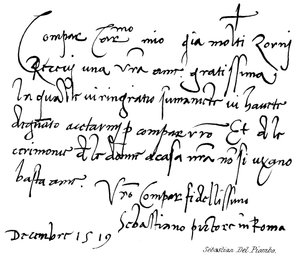 Compar Car.mo mio gia molti Zorni
Recevi una vra ame gratissima
In qual le vi ringratio sumamete vi havete
degnato acetarmi p compar vro Et de le
cerimonie de le donne a casa nra no si usano
basta ame.
Vro Compar fidellissimo
Sebastiano pictore in Roma
Decembre 1519
Sebastian Del Piombo.